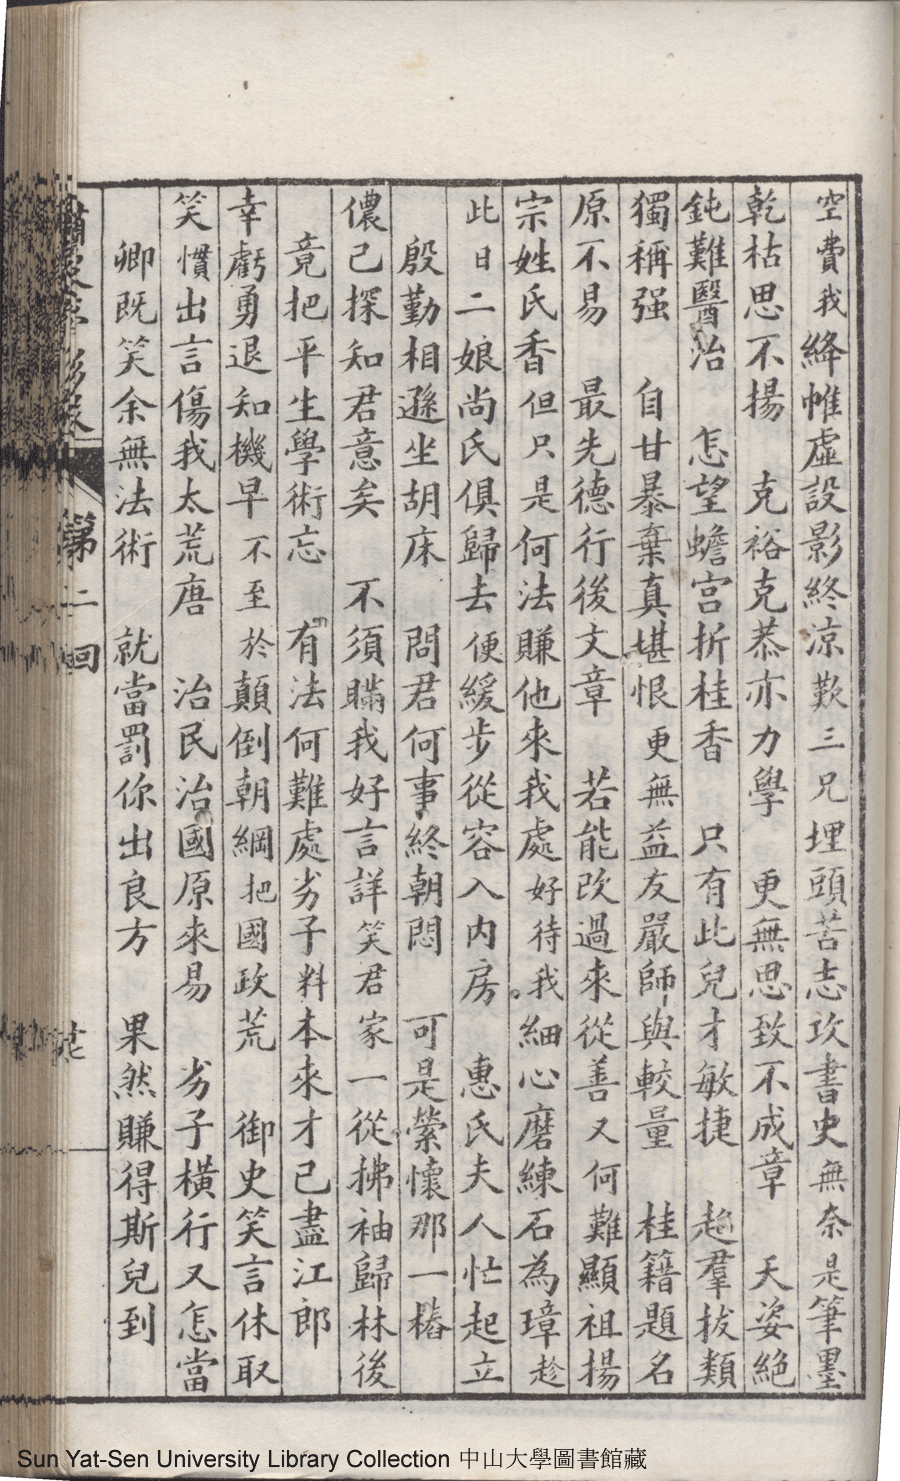 空費我絳帷虛設影終涼歎三兄埋頭苦志攻書史無奈是筆墨
乾枯思不揚　克裕克恭亦力學　更無思致不成章　天姿絕
鈍難醫治　怎望蟾宮折桂香　只有此兒才敏捷　超羣拔類
獨稱强　自甘暴棄真堪恨更無益友嚴師與較量　桂籍題名
原不易　最先德行後文章　若能改過來從善又何難顯祖揚
宗姓氏香但只是何法賺他來我處好待我細心磨練石為璋趁
此日二娘尚氏俱歸去便緩步從容入內房　惠氏夫人忙起立
殷勤相遜坐胡床　問君何事終朝悶　可是縈懷那一樁
儂已探知君意矣　不須瞞我好言詳笑君家一從拂袖歸林後
竟把平生學術忘　有法何難處劣子料本來才已盡江郎
幸虧勇退知機早不至於顛倒朝綱把國政荒　御史笑言休取
笑慣出言傷我太荒唐　治民治國原來易　劣子橫行又怎當
卿既笑余無法術　就當罰你出良方　果然賺得斯兒到
第二回
Sun Yat-Sen University Library Collection 中山大學圖書館藏